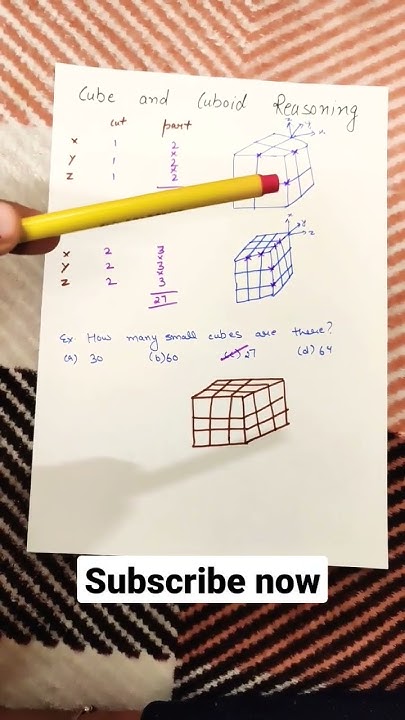 Cube and Cuboid Reasoning
cut part
x 1 2
x
y 1 2
x
z 1 2
z
y
x
x 2 3
x
y 2 3
x
z 2 3
27
x
y
z
Ex How many small cubes are there?
(a) 30 (b) 60 (c) 27 (d) 64
Subscribe now